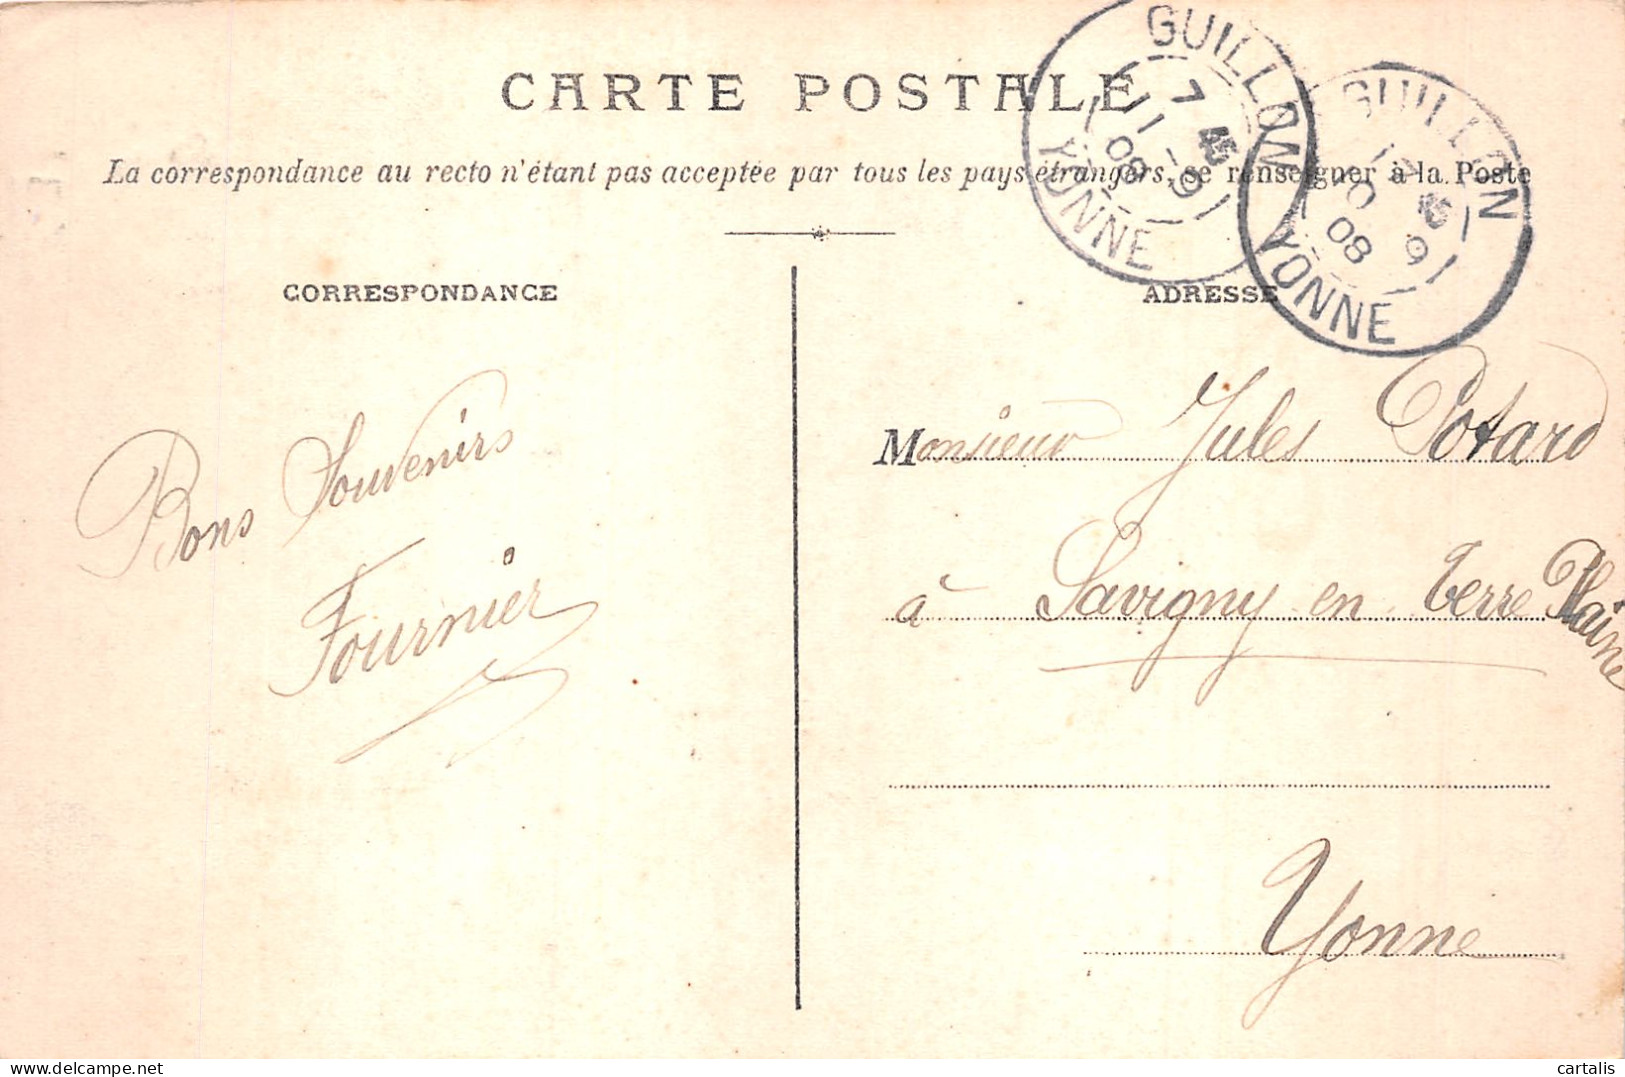 CARTE POSTALE
La correspondance au recto n'étant pas acceptée par tous les pays étrangers, se renseigner à la Poste
GUILLON
7 45
11 - 9
08
YONNE
GUILLON
08
YONNE
CORRESPONDANCE
Bons Souvenirs
Fournier
ADRESSE
Monsieur Jules Potard
à Savigny en Terre Plaine
Yonne
delcampe.net
cartalis